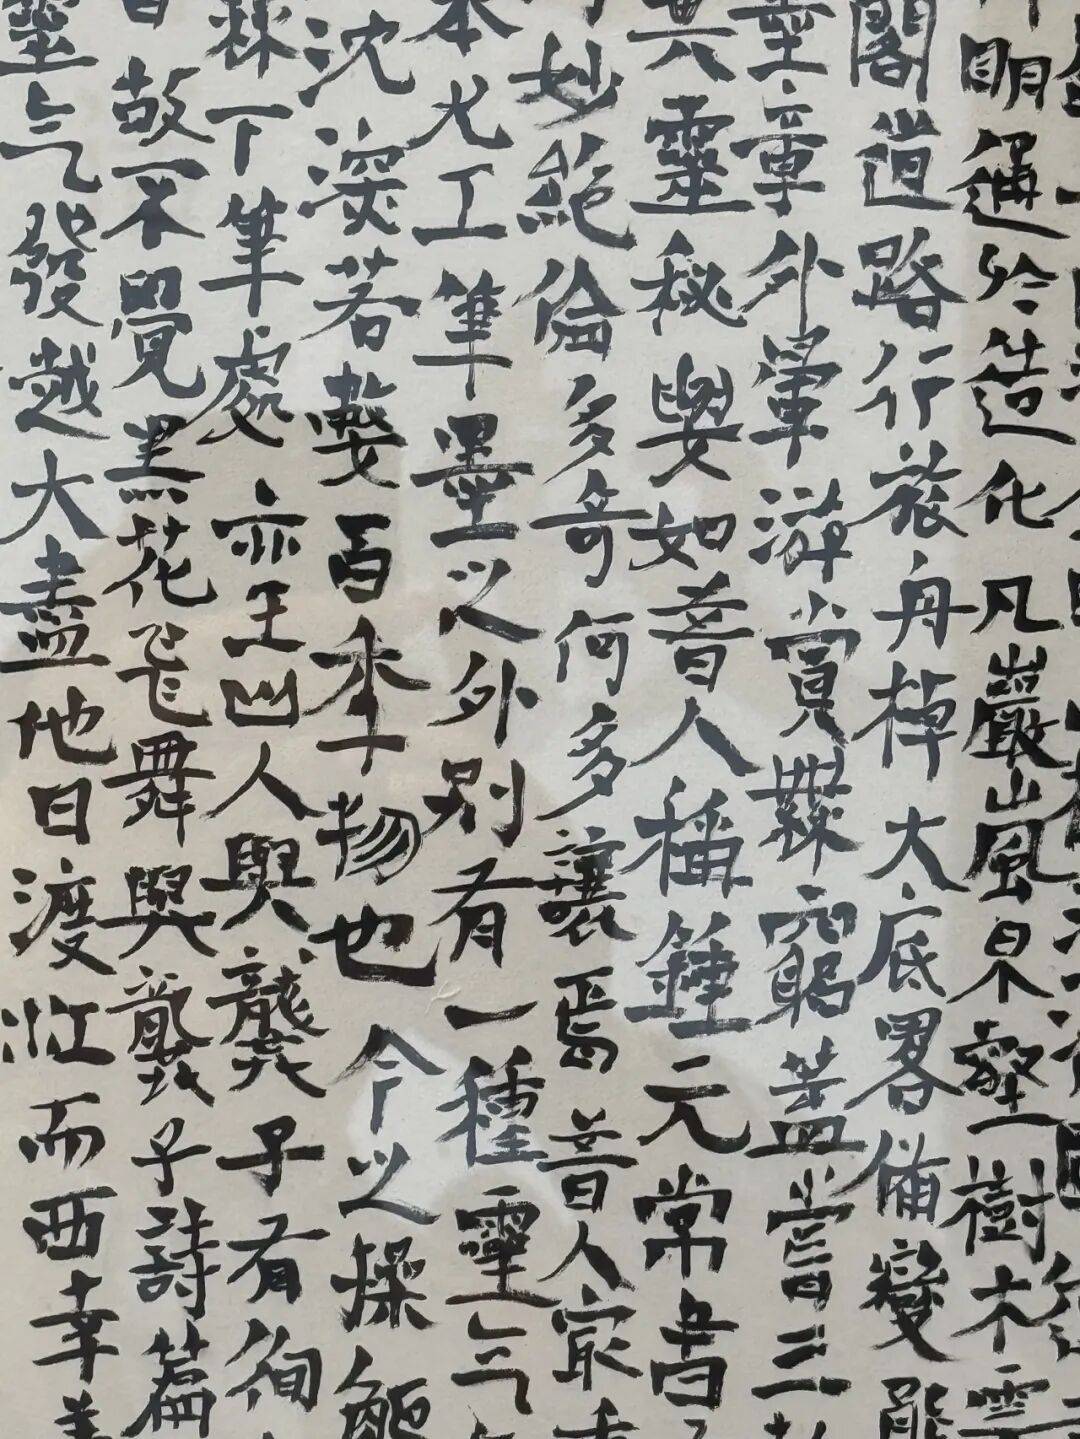 明通於造化凡巖嵐泉壑樹木雲
閣道路行旅舟棹大底畧備變能
靈章外筆游賞無窮蓋嘗三
其靈秘與如昔人稱鍾元常書
妙絶倫多奇何多讓焉昔人最重
本尤工筆墨之外別有一種靈气
沈深若數百季物也今之操觚
下筆處亦王山人與龔子有徇
故不覺黑花飛舞與龔子詩篇
靈气發越大盡他日渡江而西幸